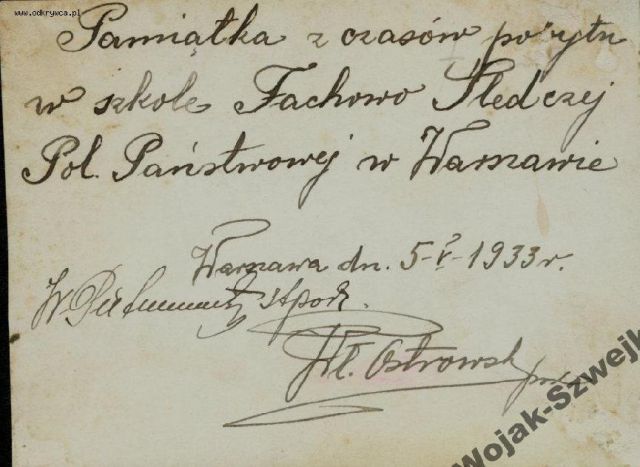 www.odkrywca.pl
Pamiątka z czasów pobytu
w szkole Fachowo Śledczej
Pol. Państwowej w Warszawie
Warszawa dn. 5-V-1933 r.
Wł. Ostrowsk
Wojak-Szwejk